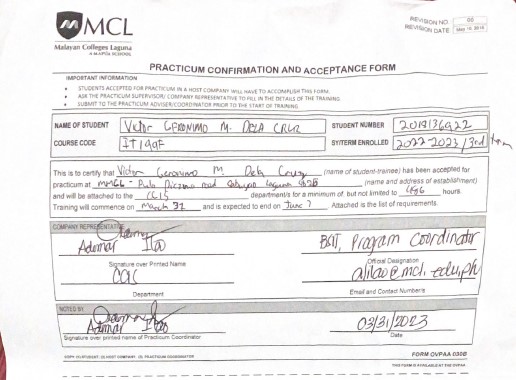 MCL
Malayan Colleges Laguna
A MAPÚA SCHOOL
REVISION NO. 00
REVISION DATE May 10, 2019
PRACTICUM CONFIRMATION AND ACCEPTANCE FORM
IMPORTANT INFORMATION
• STUDENTS ACCEPTED FOR PRACTICUM IN A HOST COMPANY WILL HAVE TO ACCOMPLISH THIS FORM.
• ASK THE PRACTICUM SUPERVISOR/ COMPANY REPRESENTATIVE TO FILL IN THE DETAILS OF THE TRAINING.
• SUBMIT TO THE PRACTICUM ADVISER/COORDINATOR PRIOR TO THE START OF TRAINING.
NAME OF STUDENT Victor GERONIMO M. DELA CRUZ STUDENT NUMBER
COURSE CODE IT199F SY/TERM ENROLLED 2022-2023/3rd term
This is to certify that Victor Geronimo M. Dela Cruz (name of student-trainee) has been accepted for
practicum at road Laguna (name and address of establishment)
and will be attached to the CCIS department/s for a minimum of, but not limited to 486 hours.
Training will commence on March 31 and is expected to end on June 7. Attached is the list of requirements.
COMPANY REPRESENTATIVE
Admar BSIT, Program Coordinator
Signature over Printed Name Official Designation
CCIS
Department Email and Contact Number/s
NOTED BY
Admar 03/31/2023
Signature over printed name of Practicum Coordinator Date
COPY (1) STUDENT; (2) HOST COMPANY (3) PRACTICUM COORDINATOR FORM OVPAA 030B
THIS FORM IS AVAILABLE AT THE OVPAA